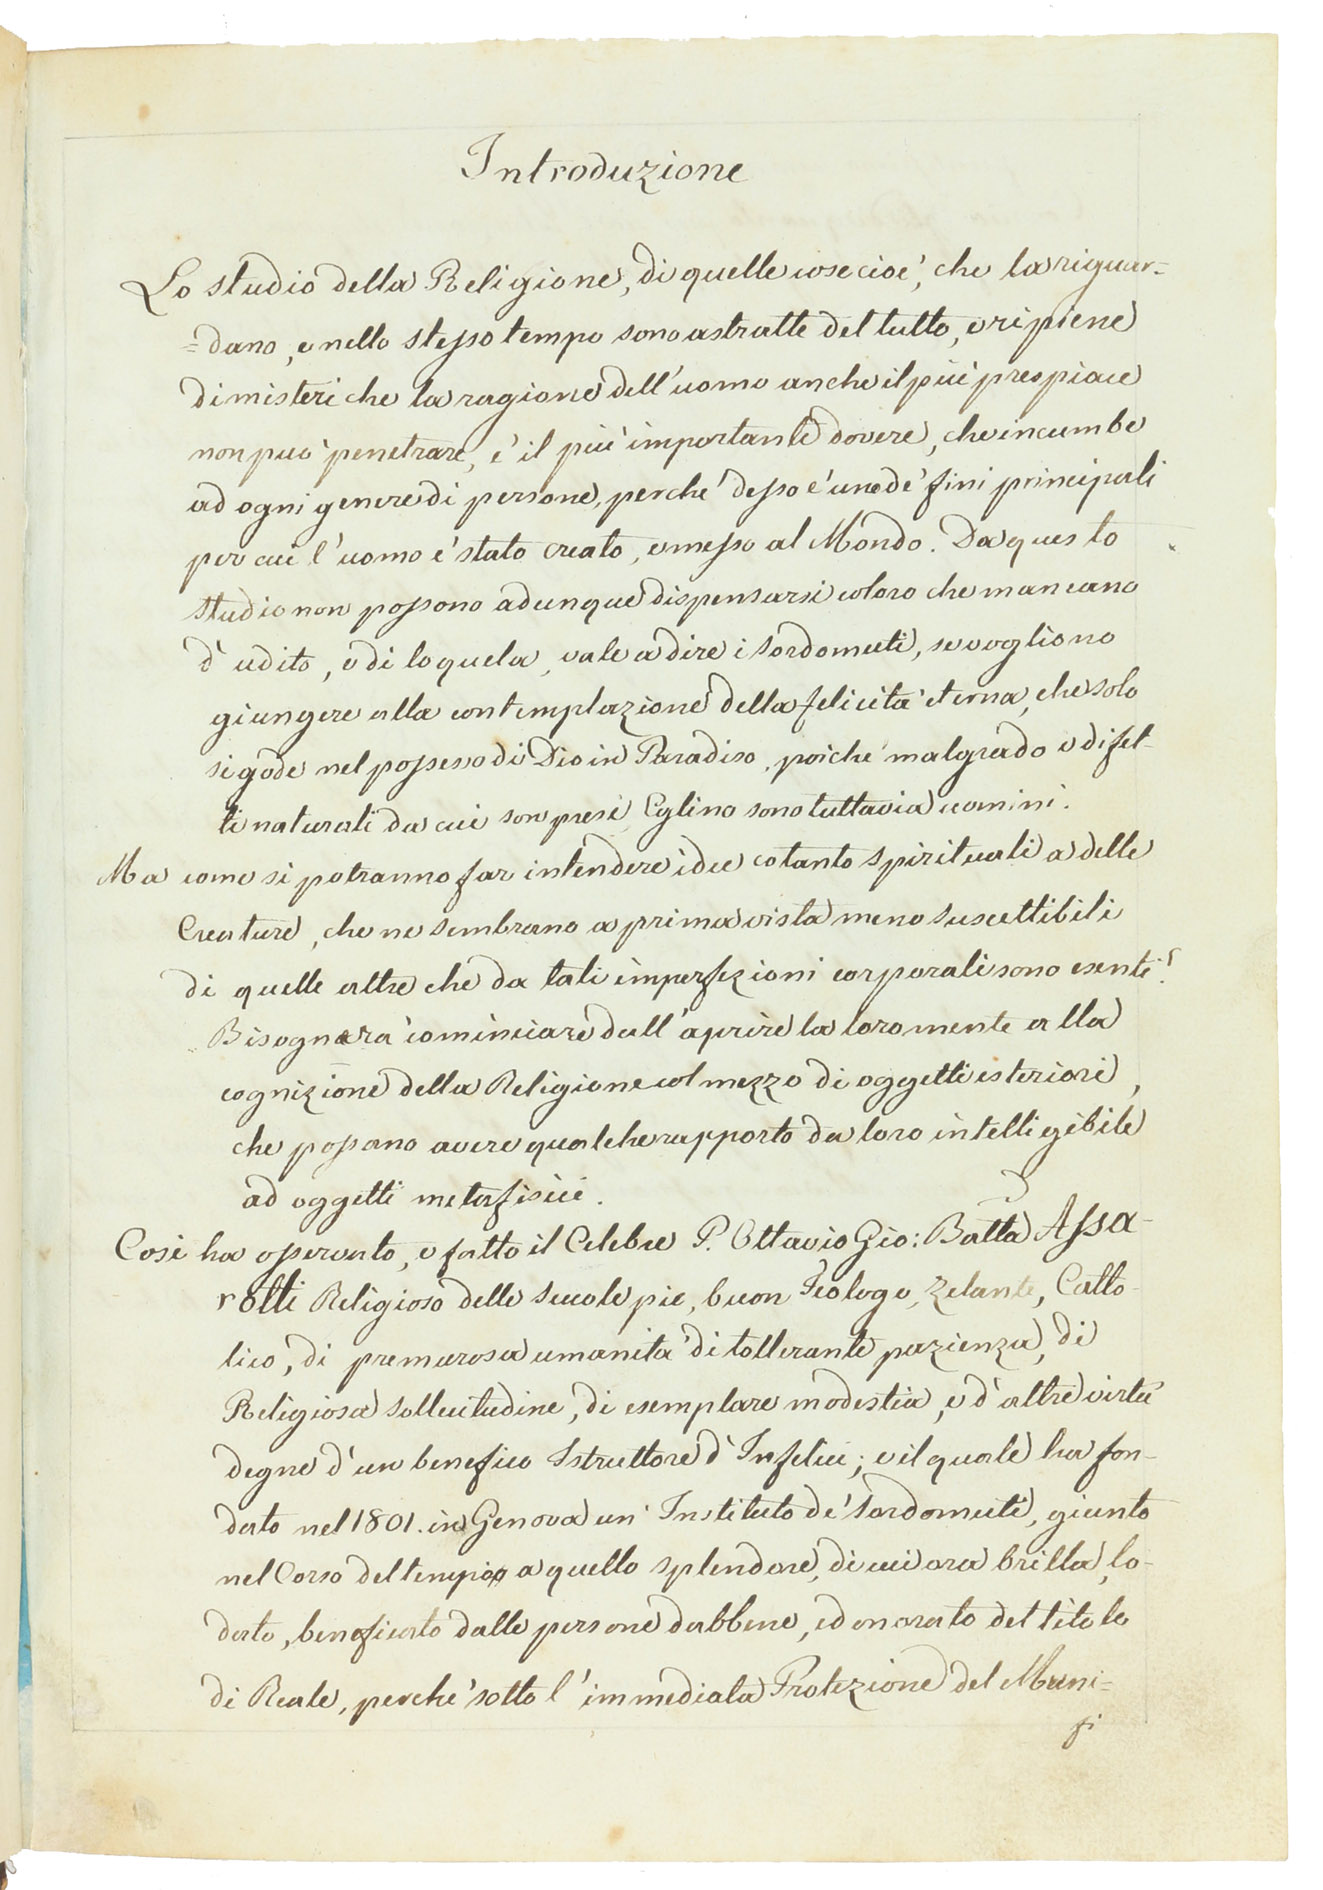 Introduzione
Lo studio della Religione, di quelle cose cioè, che la riguar=
=dano, e nello stesso tempo sono astratte del tutto, e ripiene
di misteri che la ragione dell'uomo anche il più prespicace
non può penetrare, è il più importante dovere, che incumbe
ad ogni genere di persone, perchè desso è uno de' fini principali
per cui l'uomo è stato creato, e messo al Mondo. Da questo
studio non possono adunque dispensarsi coloro che mancano
d'udito, e di loquela, vale a dire i sordomuti, se vogliono
giungere alla contemplazione della felicità eterna, che solo
si gode nel possesso di Dio in Paradiso, poichè malgrado e difet-
ti naturali da cui son presi, Eglino sono tuttavia uomini.
Ma come si potranno far intendere idee cotanto spirituali a delle
Creature, che ne sembrano a prima vista meno suscettibili
di quelle altre che da tali imperfezioni corporali sono esenti?
Bisognerà cominciare dall'aprire la loro mente alla
cognizione della Religione col mezzo di oggetti esteriori,
che possano avere qualche rapporto da loro intelligibile
ad oggetti metafisici.
Così ha operato, e fatto il Celebre P. Ottavio Gio: Batta Assa-
rotti Religioso delle Scuole pie, buon Teologo, Zelante, Catto-
lico, di premurosa umanità di tollerante pazienza, di
Religiosa sollecitudine, di esemplare modestia, e d'altre virtù
degne d'un benefico Istruttore d'Infelici; e il quale ha fon-
dato nel 1801. in Genova un Instituto de' Sordomuti, giunto
nel Corso del tempo a quello splendore, di cui ora brilla, lo-
dato, beneficato dalle persone dabbene, ed onorato del titolo
di Reale, perchè sotto l'immediata Protezione del Muni=
fi